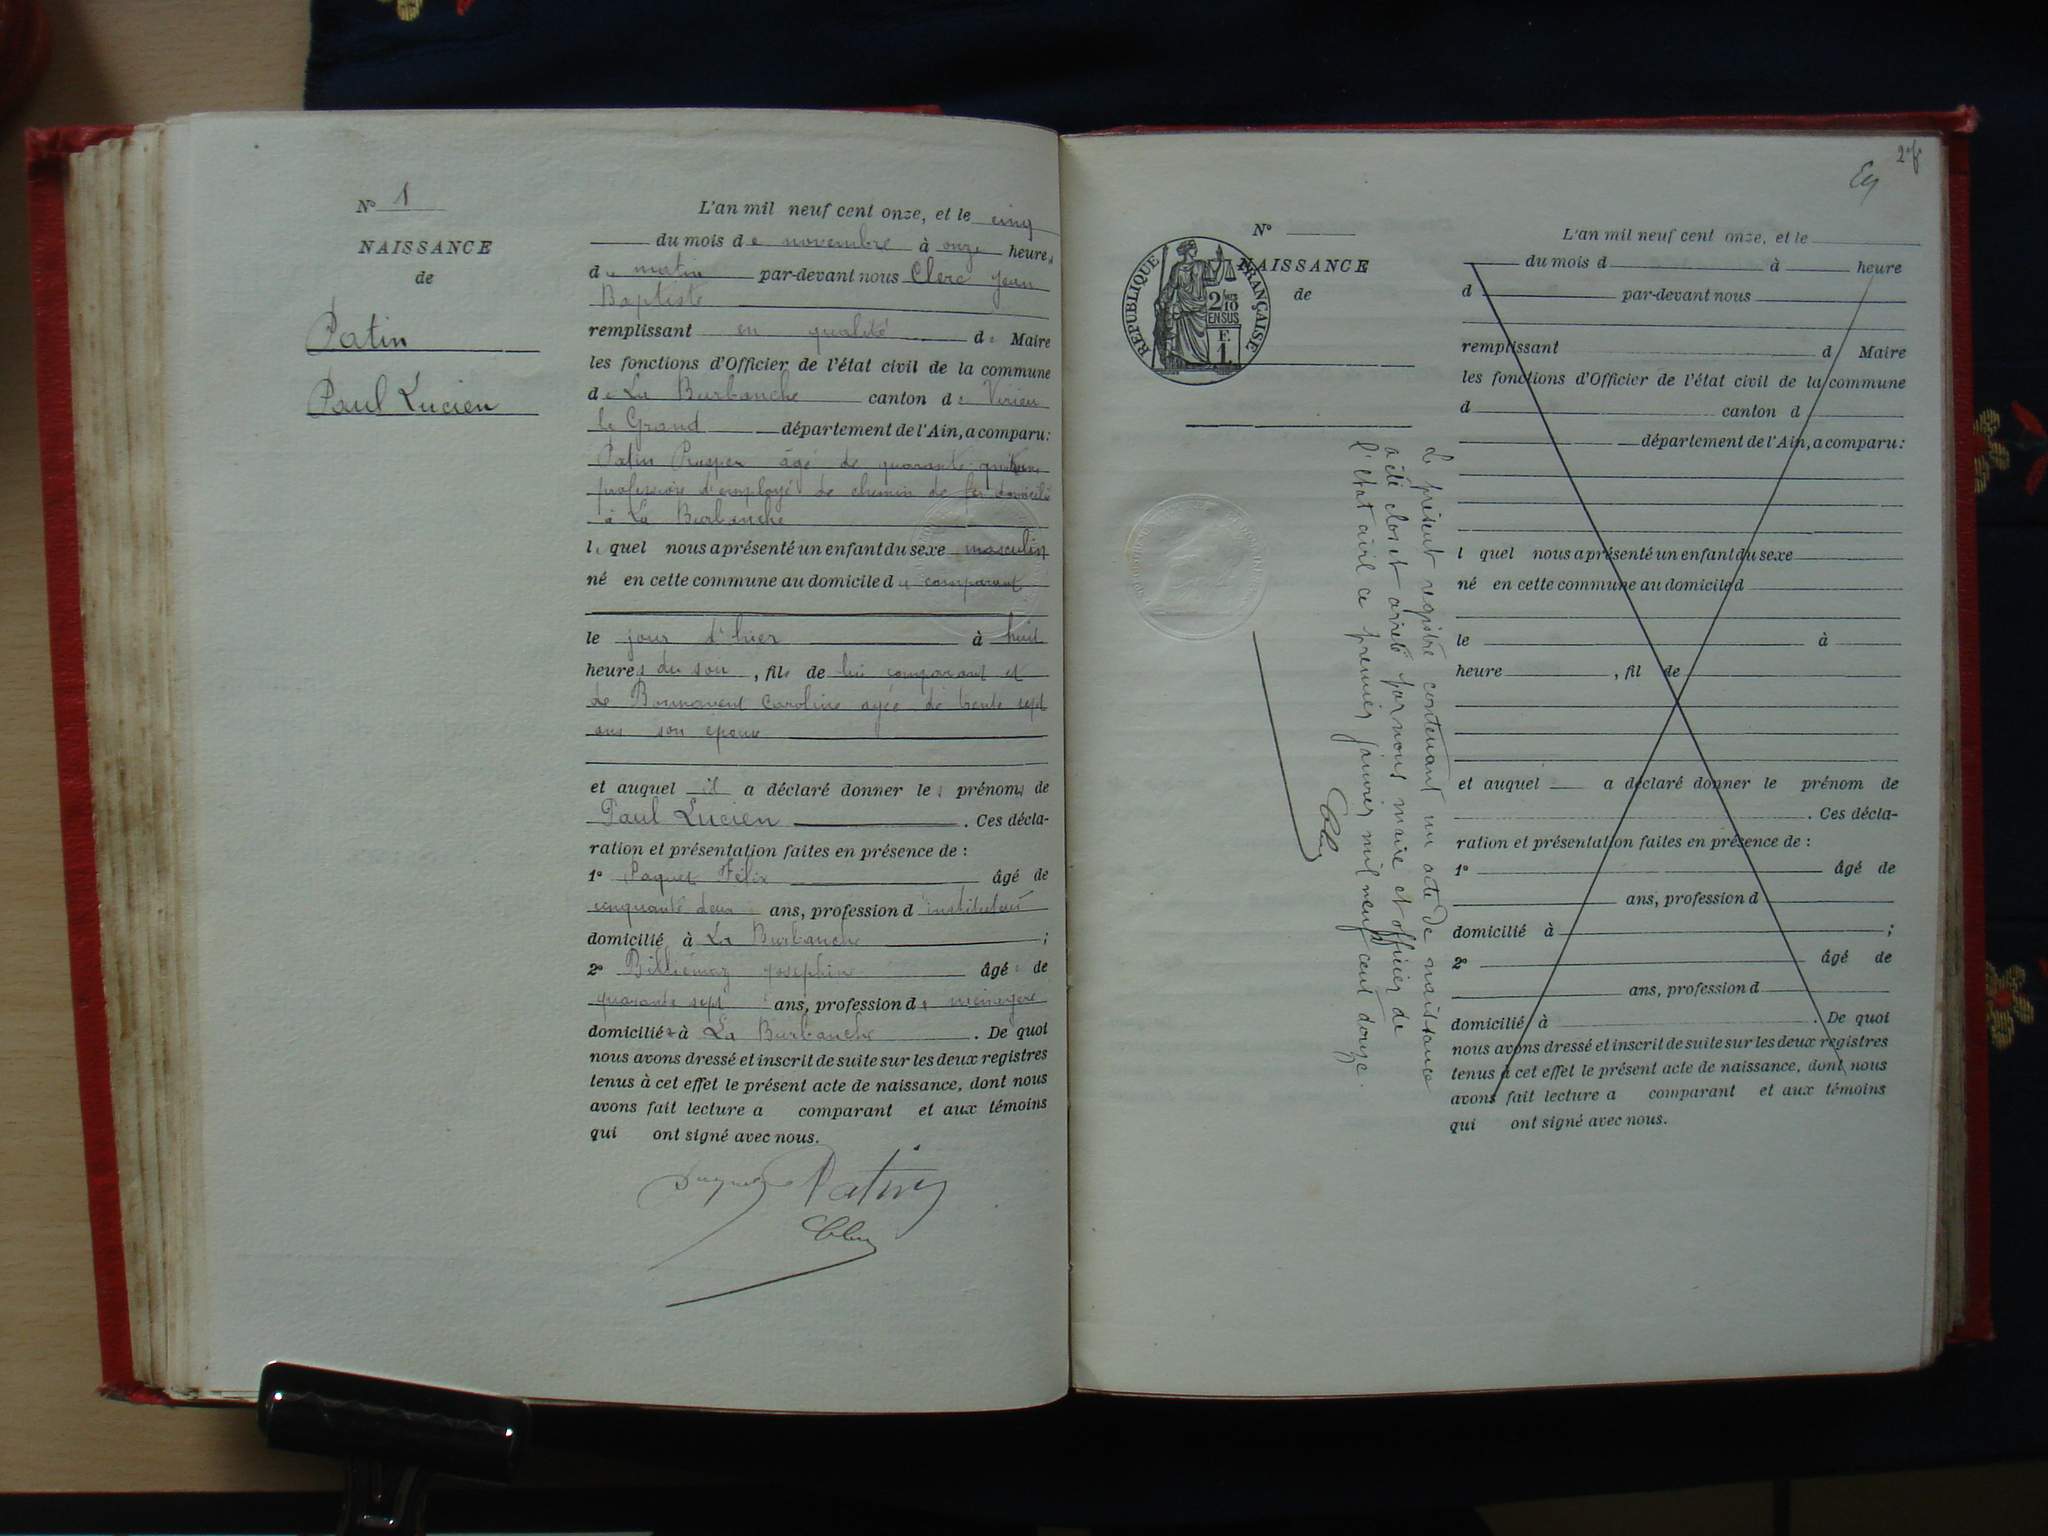 N° 1
NAISSANCE
de
Patin
Paul Lucien
L'an mil neuf cent onze, et le cinq
du mois de novembre à onze heures
du matin par-devant nous Clerc Jean
Baptiste
remplissant en qualité de Maire
les fonctions d'Officier de l'état civil de la commune
de La Burbanche canton de Virieu
le Grand département de l'Ain, a comparu:
Patin Prosper âgé de quarante
profession d'employé de chemin de fer domicilié
à La Burbanche
le quel nous a présenté un enfant du sexe masculin
né en cette commune au domicile du comparant
le jour d'hier à huit
heures du soir, fils de lui comparant et
de Bonnavent Caroline agée de trente sept
ans son épouse
et auquel il a déclaré donner les prénoms de
Paul Lucien. Ces décla-
ration et présentation faites en présence de :
1° Paquet Félix âgé de
cinquante deux ans, profession d'instituteur
domicilié à La Burbanche ;
2° Billiémaz Josephine âgée de
quarante sept ans, profession de ménagère
domiciliée à La Burbanche. De quoi
nous avons dressé et inscrit de suite sur les deux registres
tenus à cet effet le présent acte de naissance, dont nous
avons fait lecture a comparant et aux témoins
qui ont signé avec nous.
Paquet Patin
Clerc
2f
N°
NAISSANCE
de
RÉPUBLIQUE FRANÇAISE
2/10
EN SUS
E
1
Le présent registre contenant un acte de naissance
a été clos et arrêté par nous maire et officier de
l'état civil ce premier janvier mil neuf cent douze.
Clerc
L'an mil neuf cent onze, et le
du mois d à heure
d par-devant nous
remplissant d Maire
les fonctions d'Officier de l'état civil de la commune
d canton d
département de l'Ain, a comparu:
l quel nous a présenté un enfant du sexe
né en cette commune au domicile d
le à
heure , fil de
et auquel a déclaré donner le prénom de
. Ces décla-
ration et présentation faites en présence de :
1° âgé de
ans, profession d
domicilié à ;
2° âgé de
ans, profession d
domicilié à . De quoi
nous avons dressé et inscrit de suite sur les deux registres
tenus à cet effet le présent acte de naissance, dont nous
avons fait lecture a comparant et aux témoins
qui ont signé avec nous.